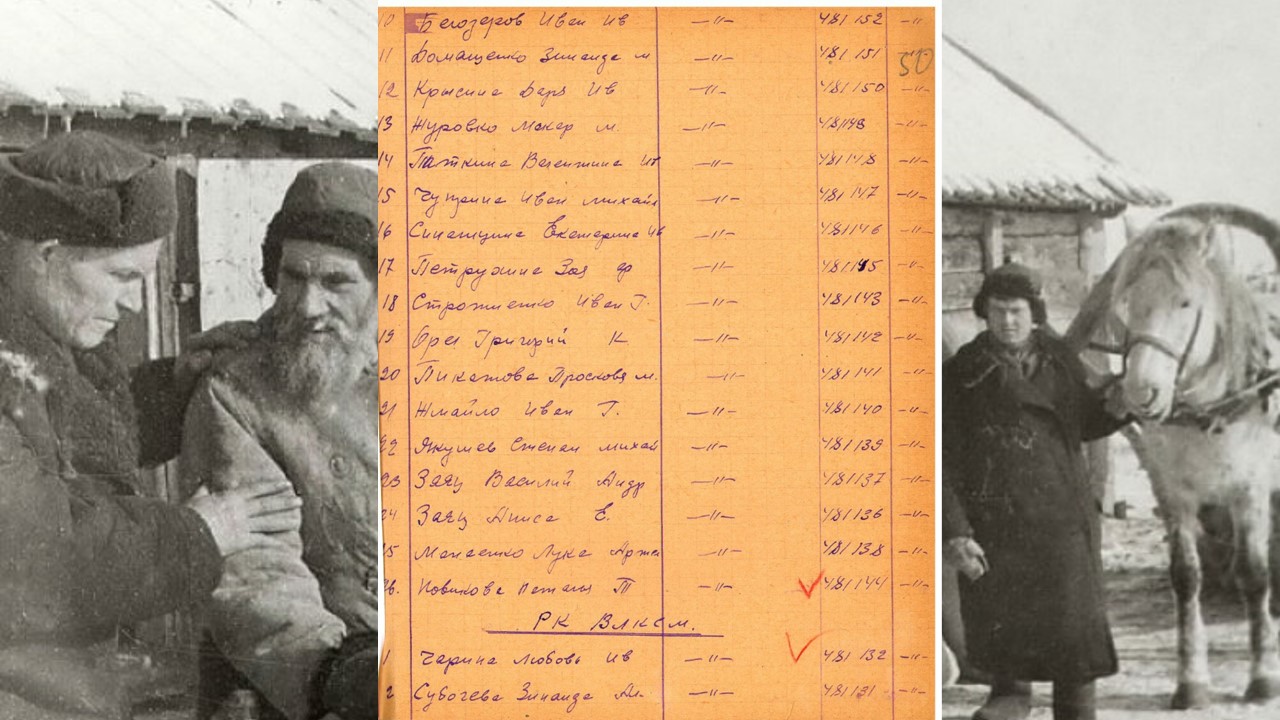 10 Белозеров Иван Ив —"— 481152 —"—
11 Домащенко Зинаида м —"— 481151 —"— 50
12 Крысина Дарья Ив —"— 481150 —"—
13 Журовко Макар м. —"— 481149 —"—
14 Паткина Валентина Ив —"— 481148 —"—
15 Иван Михайл —"— 481147 —"—
16 Синатцина Екатерина Ив —"— 481146 —"—
17 Петрухина Зоя ф —"— 481145 —"—
18 Строжненко Иван Г. —"— 481143 —"—
19 Орел Григорий К —"— 481142 —"—
20 Пикатова Просковя м. —"— 481141 —"—
21 Жмайло Иван Г. —"— 481140 —"—
22 Якушев Степан михай —"— 481139 —"—
23 Заяц Василий Андр —"— 481137 —"—
24 Заяц Анисе Е. —"— 481136 —"—
25 Лука Артем —"— 481138 —"—
26. Новикова Наталья Т —"— 481144 —"—
РК ВЛКСМ.
1 Чарина Любовь Ив —"— 481132 —"—
2 Субочева Зинаида Ал. —"— 481131 —"—